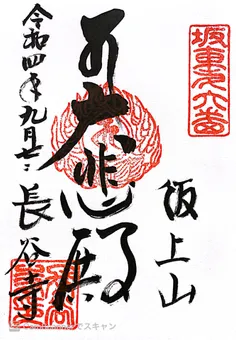 坂東第六番
飯上山
大悲殿
令和四年九月七日
長谷寺
でスキャン